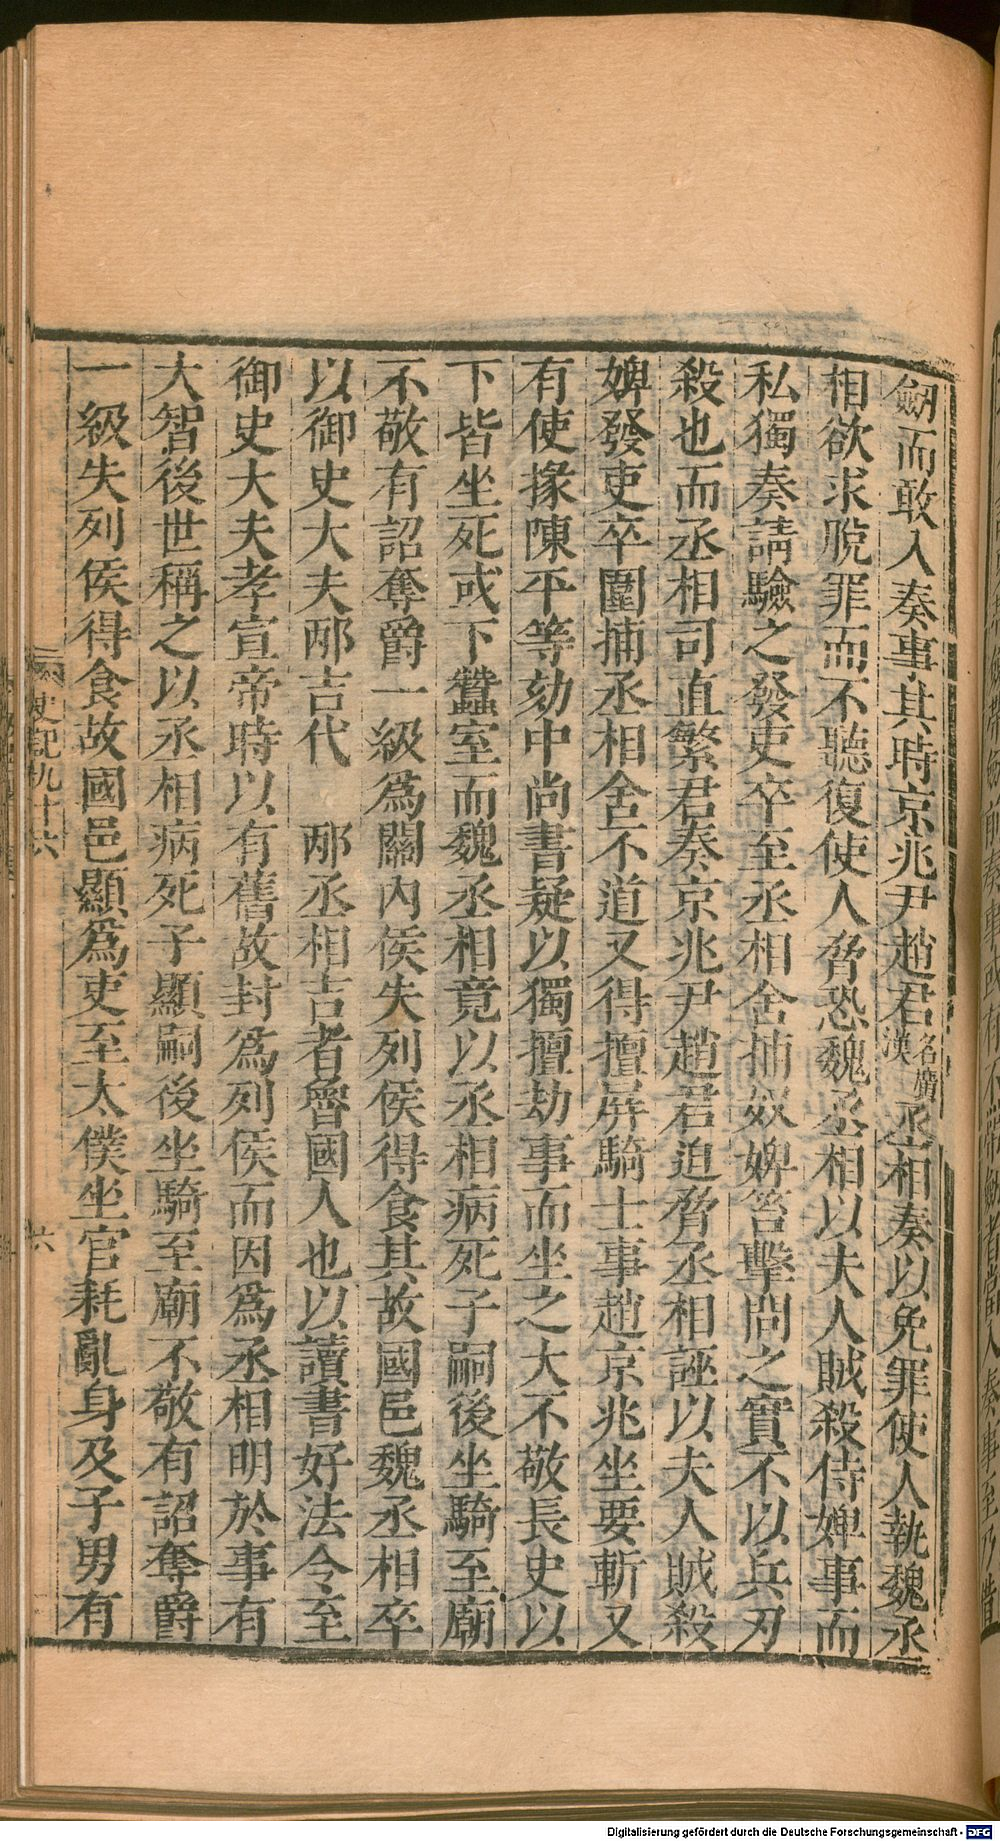 劒而敢入奏事其時京兆尹趙君名廣漢丞相奏以免罪使人執魏丞
相欲求脫罪而不聽復使人脅恐魏丞相以夫人賊殺侍婢事而
私獨奏請驗之發吏卒至丞相舍捕奴婢笞擊問之實不以兵刃
殺也而丞相司直繁君奏京兆尹趙君迫脅丞相誣以夫人賊殺
婢發吏卒圍捕丞相舍不道又得擅屏騎士事趙京兆坐要斬又
有使掾陳平等劾中尚書疑以獨擅劫事而坐之大不敬長史以
下皆坐死或下蠶室而魏丞相竟以丞相病死子嗣後坐騎至廟
不敬有詔奪爵一級爲關內侯失列侯得食其故國邑魏丞相卒
以御史大夫邴吉代　邴丞相吉者魯國人也以讀書好法令至
御史大夫孝宣帝時以有舊故封爲列侯而因爲丞相明於事有
大智後世稱之以丞相病死子顯嗣後坐騎至廟不敬有詔奪爵
一級失列侯得食故國邑顯爲吏至太僕坐官耗亂身及子男有
史記九十六
六
Digitalisierung gefördert durch die Deutsche Forschungsgemeinschaft - DFG